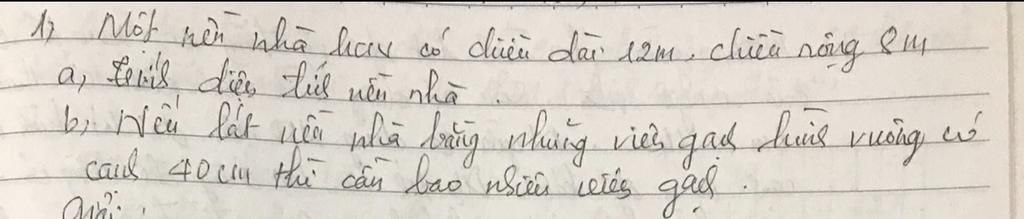 1, Một nền nhà hcn có chiều dài 12m, chiều rộng 8m
a, tính diện tích nền nhà.
b, Nếu lát nền nhà bằng những viên gạch hình vuông có
cạnh 40cm thì cần bao nhiêu viên gạch.
Giải: